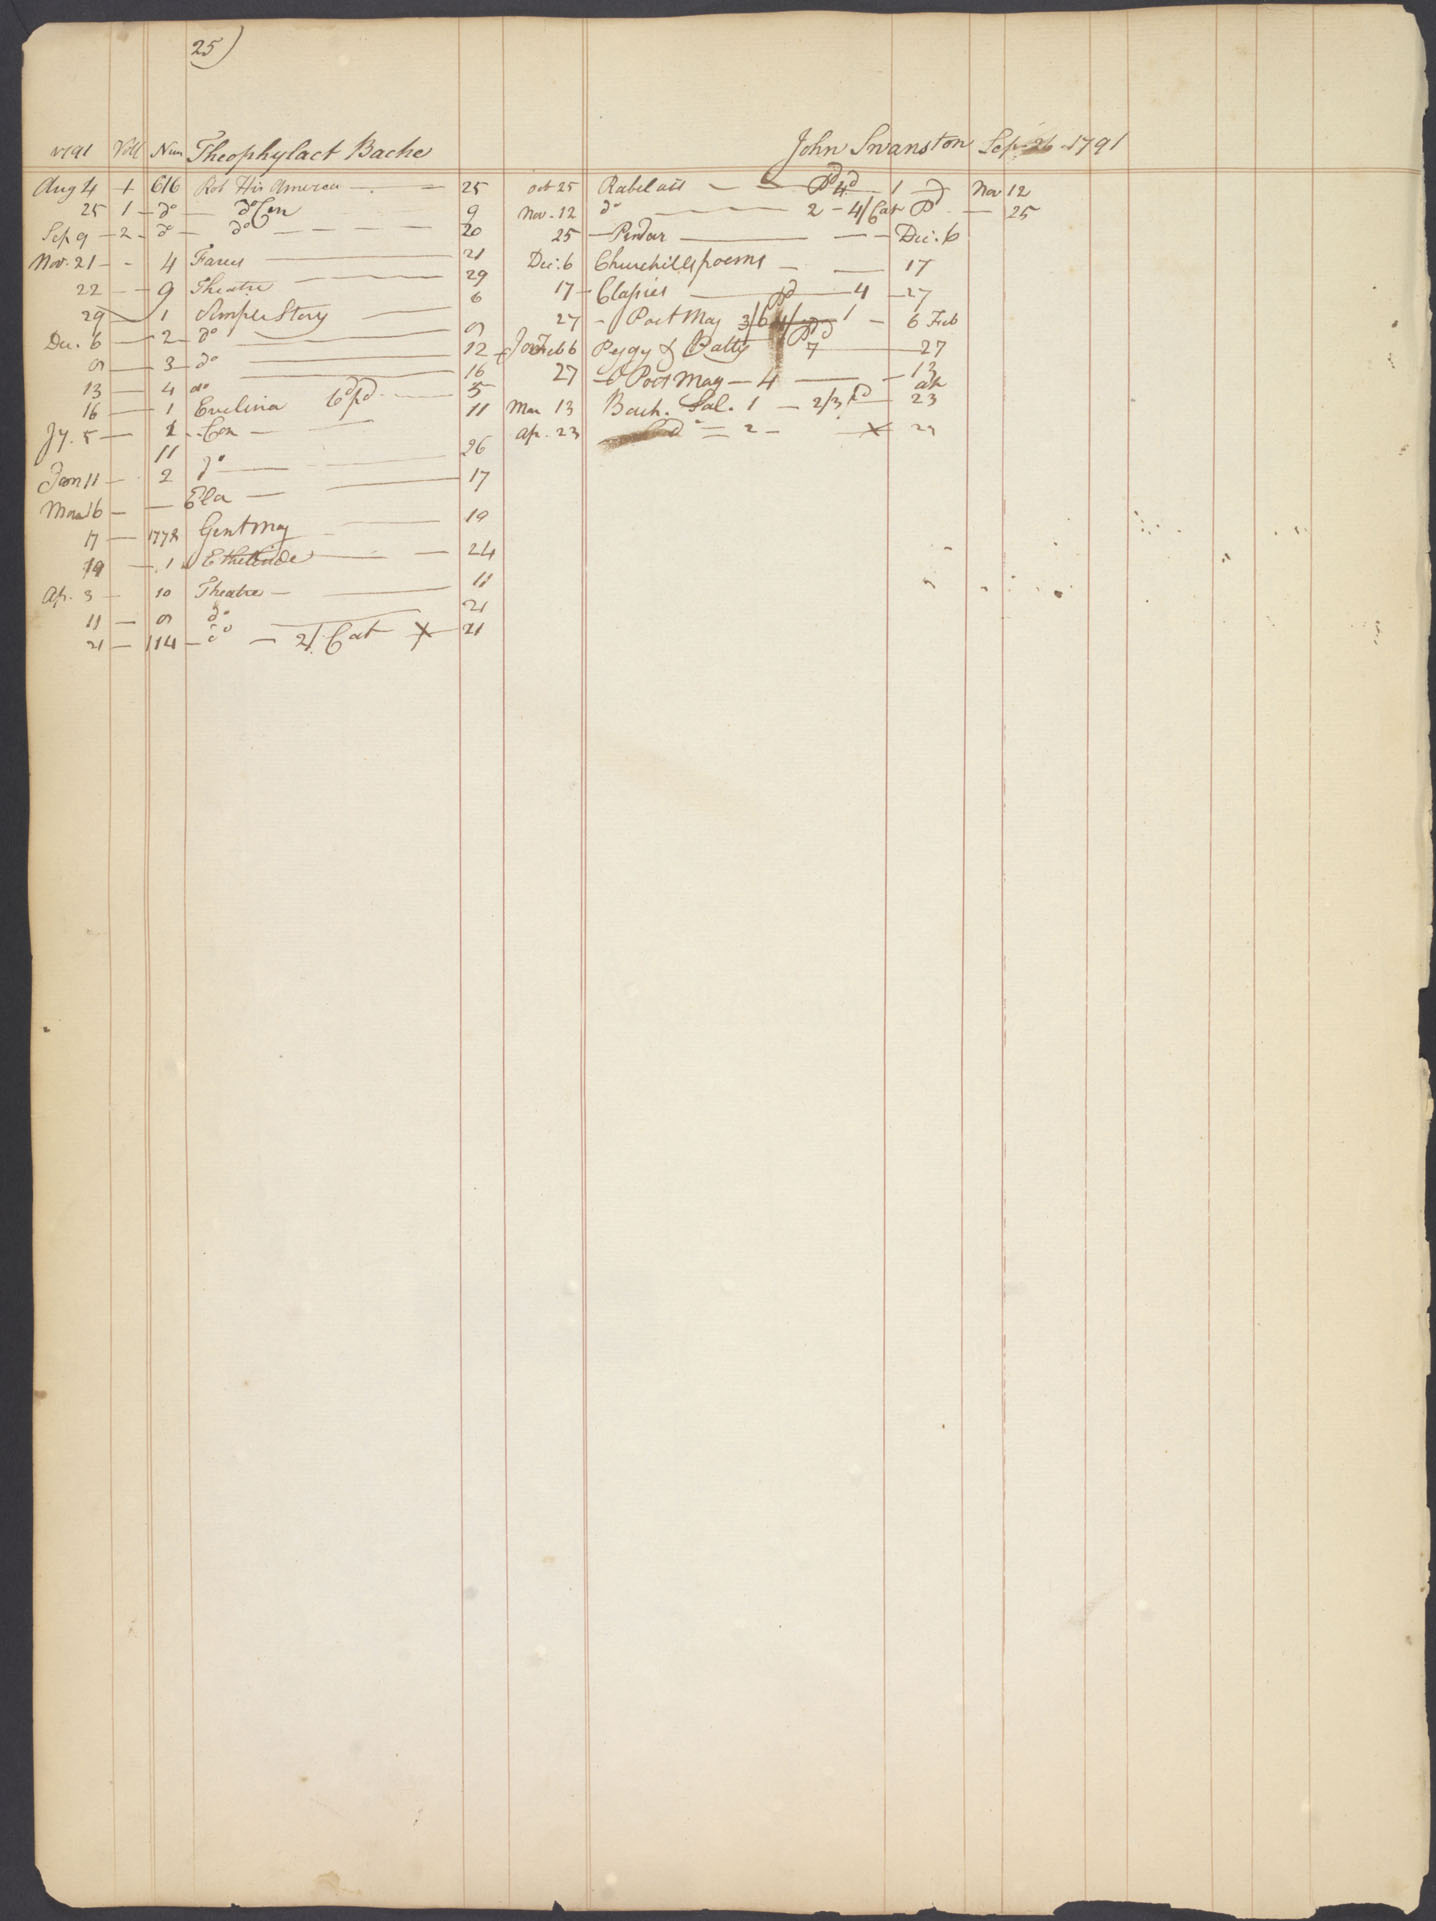 25)
1791 Voll Num Theophylact Bache
Aug 4 1 616 Rob His America 25
25 1 do do Con 9
Sep 9 2 do do 20
Nov. 21 4 21
22 9 Theatre 29
29 1 Simple Story 6
Dec. 6 2 do 9
9 3 do 12
13 4 do 16
16 1 Evelina 6d pd 5
Jy. 5 Con 11
11
Jan 11 2 do 26
Mar 16 Ela 17
17 Gent Mag 19
19 1 Ethelinde 24
Ap. 3 10 Theatre 11
11 9 do 21
21 114 do 2/. Cat X 21
John Swanston Sep. 26 1791
oct 25 Rabelais Pd 4d 1 Nov 12
Nov. 12 do 2 4/ Cat Pd 25
25 Pindar Dec. 6
Dec. 6 Churchills poems 17
17 pd 4 27
27 Poet Mag 3/6 4/ 1 6 Feb
Feb 6 Peggy & Patty Pd 7 27
27 Poet Mag 4 13
Mar 13 Bach. Sal. 1 2/3 pd 23
Ap. 23 2 X